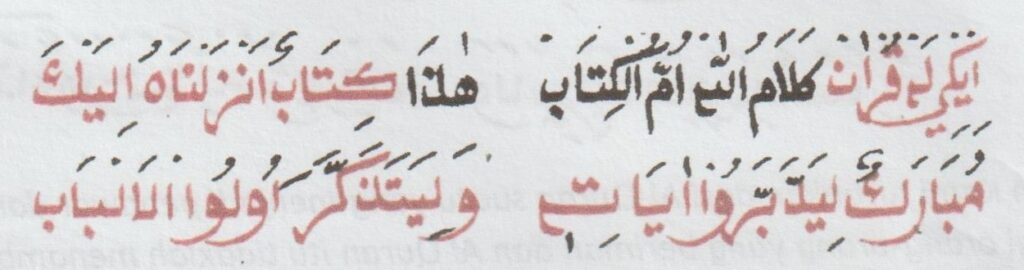 قُرْاٰن كَلَامُ اللّٰه اُمُّ الْكِتَاب هٰذَا كِتَابٌ اَنْزَلْنَاهُ اِلَيْكَ
مُبَارَكٌ لِيَدَّبَّرُوا اٰيَاتِهِ وَلِيَتَذَكَّرَ اُولُوا الْاَلْبَابِ